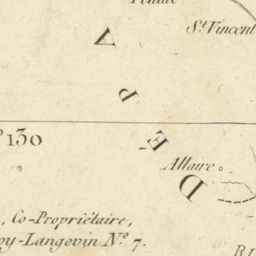 St. Vincent
D E P A
130
Allaire
, Co-Propriétaire,
oy-Langevin No. 7.